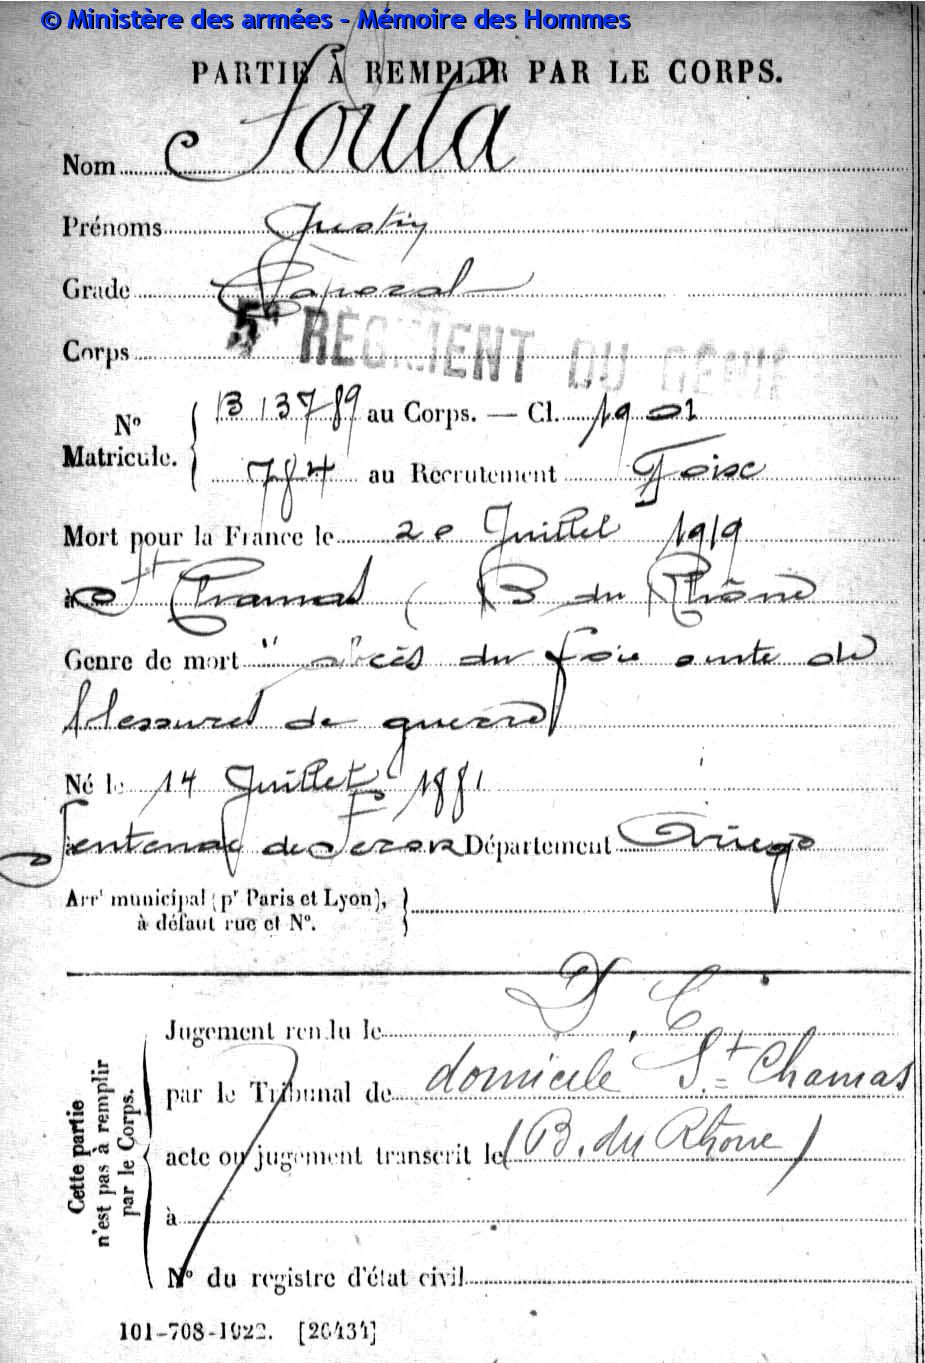 © Ministère des armées - Mémoire des Hommes
PARTIE À REMPLIR PAR LE CORPS.
Nom Soula
Prénoms Justin
Grade Caporal
Corps 5e RÉGIMENT DU GÉNIE
No Matricule. { 13 13789 au Corps. — Cl. 1901
784 au Recrutement Foix
Mort pour la France le 20 Juillet 1919
à St Chamas (B du Rhône
Genre de mort " abcès du foie suite de
blessures de guerre
Né le 14 Juillet 1881
à Sentenac de Serou Département Ariège
Arrt municipal (pr Paris et Lyon),
à défaut rue et No.
Cette partie n'est pas à remplir par le Corps.
Jugement rendu le D. C.
par le Tribunal de domicile St Chamas
acte ou jugement transcrit le (B. du Rhône)
à
No du registre d'état civil
101-708-1922. [26434]